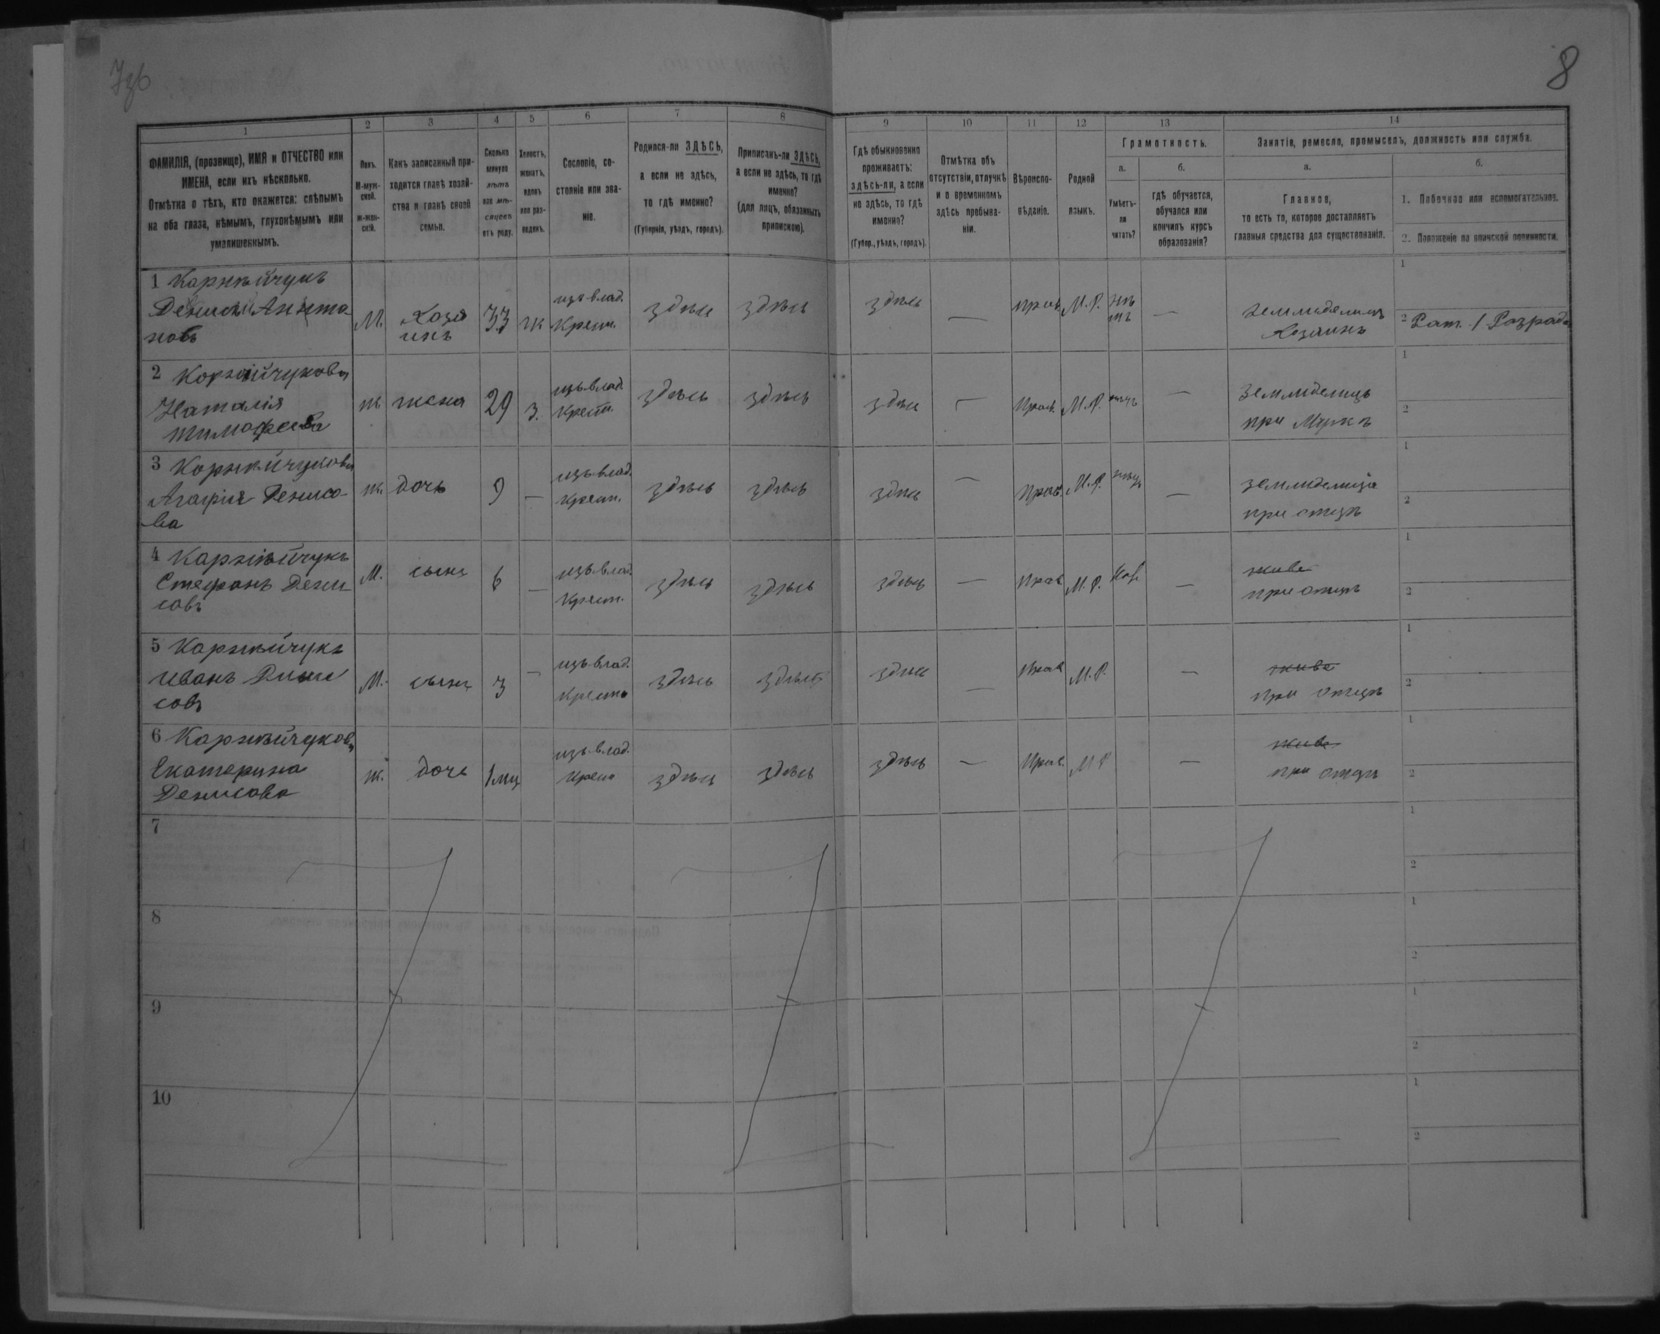 8
1 2 3 4 5 6 7 8 9 10 11 12 13 14
ФАМИЛІЯ, (прозвище), ИМЯ и ОТЧЕСТВО или
ИМЕНА, если ихъ нѣсколько.
Отмѣтка о тѣхъ, кто окажется: слѣпымъ
на оба глаза, нѣмымъ, глухонѣмымъ или
умалишеннымъ.
Полъ.
М-муж-
ской.
ж-жен-
скій.
Какъ записанный при-
ходится главѣ хозяй-
ства и главѣ своей
семьи.
Сколько
минуло
лѣтъ
или мѣ-
сяцевъ
отъ роду.
Холостъ,
женатъ,
вдовъ
или раз-
веденъ.
Сословіе, со-
стояніе или зва-
ніе.
Родился-ли ЗДѢСЬ,
а если не здѣсь,
то гдѣ именно?
(Губернія, уѣздъ, городъ).
Приписанъ-ли ЗДѢСЬ,
а если не здѣсь, то гдѣ
именно?
(для лицъ, обязанныхъ
припискою).
Гдѣ обыкновенно
проживаетъ:
здѣсь-ли, а если
не здѣсь, то гдѣ
именно?
(Губер., уѣздъ, городъ).
Отмѣтка объ
отсутствіи, отлучкѣ
и о временномъ
здѣсь пребыва-
ніи.
Вѣроиспо-
вѣданіе.
Родной
языкъ.
Грамотность.
а.
Умѣетъ-
ли
читать?
б.
гдѣ обучается,
обучался или
кончилъ курсъ
образованія?
Занятіе, ремесло, промыселъ, должность или служба.
а.
Главное,
то есть то, которое доставляетъ
главныя средства для существованія.
б.
1. Побочное или вспомогательное.
2. Положеніе по воинской повинности.
1 Карнѣйчукъ
Денисъ Анто
новъ
М.
Хозя
инъ
33
ж
изъ влад.
Крест.
здѣсь
здѣсь
здѣсь
—
Прав.
М.Р.
нѣ
тъ
—
Земледелецъ
Хозаинъ
1
2 Рат. 1 Розрада
2 Корнійчукова
Наталія
Тимофеева
ж
жена
29
з.
изъ влад
Крест.
здѣсь
здѣсь
здѣсь
—
Прав.
М.Р.
—
Земледелецъ
при Мужъ
1
2
3 Корнѣйчукова
Агафія Денисо-
ва
ж.
дочь
9
—
изъ влад.
Крест.
здѣсь
здѣсь
здѣсь
—
Прав.
М.Р.
—
земледелица
при отцѣ
1
2
4 Карнѣйчукъ
Стефанъ Дени
совъ
М.
сынъ
6
—
изъ влад.
Крест.
здѣсь
здѣсь
здѣсь
—
Прав
М.Р.
—
живе
при отцѣ
1
2
5 Карнѣйчукъ
Иванъ Дени
совъ
М.
сынъ
3
—
изъ влад.
Крест
здѣсь
здѣсь
здѣсь
—
Прав
М.Р.
—
живе
при отцѣ
1
2
6 Карнѣйчукова
Екатерина
Денисова
ж.
дочь
1 мц
изъ влад.
Крест
здѣсь
здѣсь
здѣсь
—
Прав
М Р
—
живе
при отцѣ
1
2
7
1
2
8
1
2
9
1
2
10
1
2